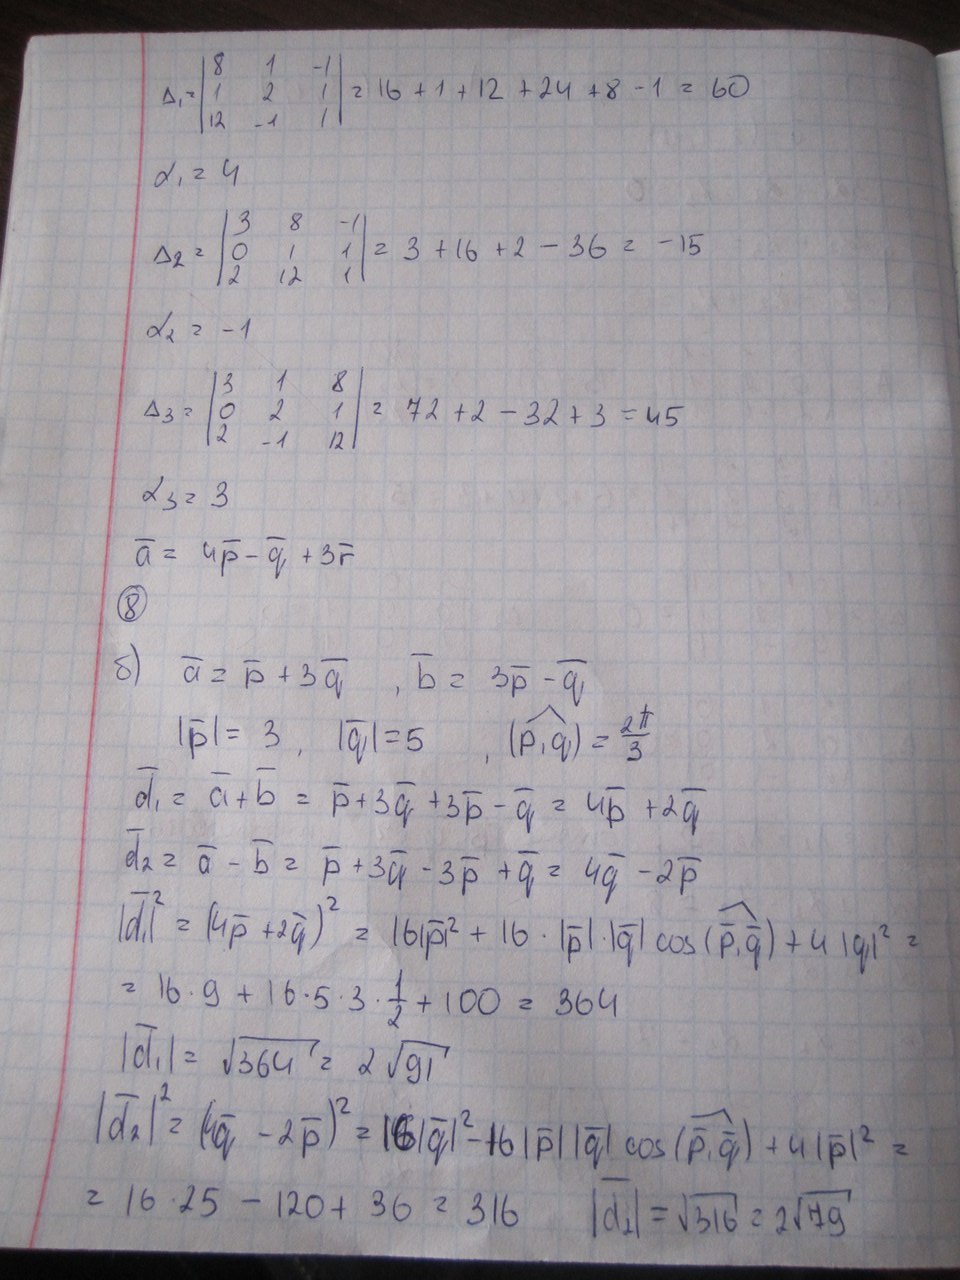 Δ₁ = |8 1 -1; 1 2 1; 12 -1 1| = 16 + 1 + 12 + 24 + 8 - 1 = 60
α₁ = 4
Δ₂ = |3 8 -1; 0 1 1; 2 12 1| = 3 + 16 + 2 - 36 = -15
α₂ = -1
Δ₃ = |3 1 8; 0 2 1; 2 -1 12| = 72 + 2 - 32 + 3 = 45
α₃ = 3
a̅ = 4p̅ - q̅ + 3r̅
⑧
б) a̅ = p̅ + 3q̅ , b̅ = 3p̅ - q̅
|p̅| = 3 , |q̅| = 5 , (p,^q) = 2π/3
d̅₁ = a̅ + b̅ = p̅ + 3q̅ + 3p̅ - q̅ = 4p̅ + 2q̅
d̅₂ = a̅ - b̅ = p̅ + 3q̅ - 3p̅ + q̅ = 4q̅ - 2p̅
|d̅₁|² = (4p̅ + 2q̅)² = 16|p̅|² + 16 · |p̅| · |q̅| cos(p̅,^q̅) + 4|q|² =
= 16 · 9 + 16 · 5 · 3 · 1/2 + 100 = 364
|d̅₁| = √364 = 2√91
|d̅₂|² = (4q̅ - 2p̅)² = 16|q̅|² - 16|p̅||q̅| cos(p̅,^q̅) + 4|p̅|² =
= 16 · 25 - 120 + 36 = 316 |d̅₂| = √316 = 2√79